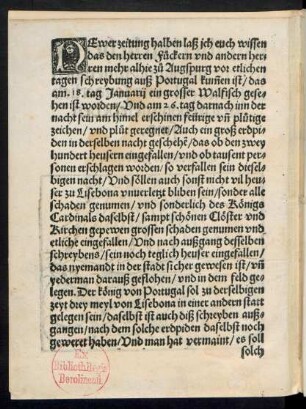 NEwer zeitung halben laß jch euch wissen
das den herren Fückern vnd andern her
ren mehr alhie zů Augspurg vor etlichen
tagen schreybung auß Portugal kum̃en ist/ das
am .18. tag Januarij ein grosser Walfisch gese-
hen ist worden/ Vnd am 26. tag darnach inn der
nacht sein am himel erschinen feürige vñ plůtige
zeichen/ vnd plůt geregnet/ Auch ein groß erdpi-
den in derselben nacht geschehẽ/ das ob den zwey
hundert heusern eingefallen/ vnd ob tausent per-
sonen erschlagen worden/ so verfallen sein diesel-
bigen nacht/ Vnd söllen auch sonst nicht vil heu-
ser zu Lisebona vnuerletzt bliben sein/ sonder alle
schaden genumen/ vnd sonderlich des Königs
Cardinals daselbst/ sampt schönen Clöster vnd
Kirchen gepewen grossen schaden genumen vnd
etliche eingefallen/ Vnd nach außgang desselben
schreybens/ sein noch teglich heuser eingefallen/
das nyemandt in der stadt sicher gewesen ist/ vñ
yederman darauß geflohen/ vnd in dem feld ge-
legen. Der könig von Portugal sol zu derselbigen
zeyt drey meyl von Lisebona in einer andern start
gelegen sein/ daselbst ist auch diß schreyben auß-
gangen/ nach dem solche erdpiden daselbst noch
geweret haben/ Vnd man hat vermaint/ es soll
solch
Ex
Bibliotheca
Berolinensi